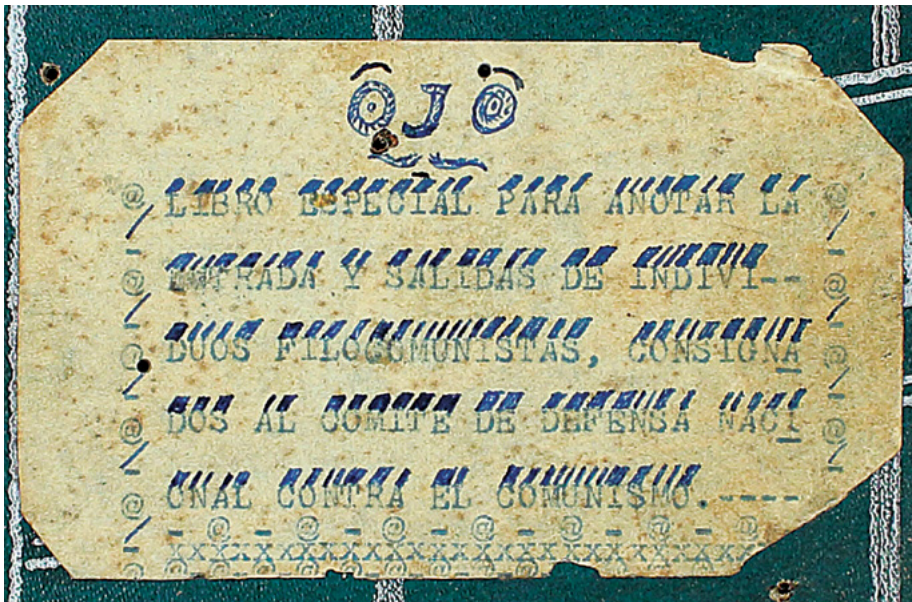 OJO
LIBRO ESPECIAL PARA ANOTAR LA
ENTRADA Y SALIDAS DE INDIVI--
DUOS FILOCOMUNISTAS, CONSIGNA
DOS AL COMITE DE DEFENSA NACI
ONAL CONTRA EL COMUNISMO.----
@ - @ - @ - @ - @ - @ - @
XXXXXXXXXXXXXXXXXXXXXXXXXXXXX